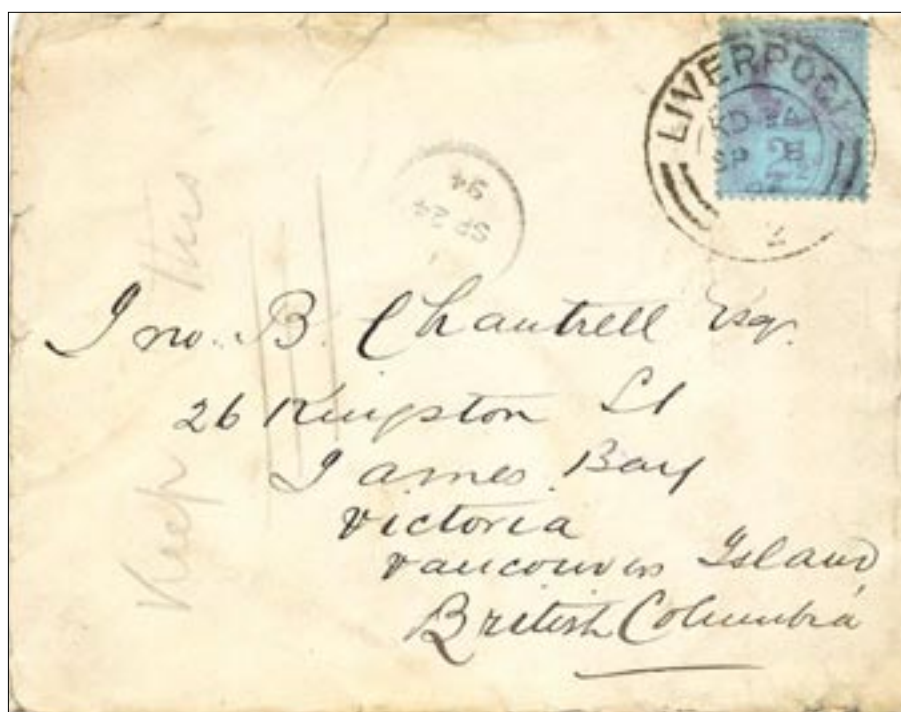 LIVERPOOL
SP 8
2½
SP 24
94
Keep this
Jno. B. Chantrell Esqr.
26 Kingston St
James Bay
Victoria
Vancouvers Island
British Columbia